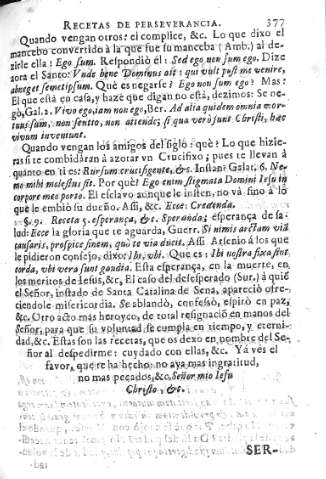 RECETAS DE PERSEVERANCIA. 377
Quando vengan otros: el complice, &c. Lo que dixo el
mancebo convertido à la que fue su manceba (Amb.) al de-
zirle ella: Ego sum. Respondiò èl: Sed ego non sum ego. Dize
aora el Santo: Unde bene Dominus ait: qui vult post me venire,
abneget semetipsum. Què es negarse? Ego non sum ego? Mas:
El que està en casa, y haze que digan no està, dezimos: Se ne-
gò, Gal. 2. Vivo ego, iam non ego, Ber. Ad alia quidem omnia mor-
tuus sum, non sentio, non attendo; si qua verò sunt Christi, hæc
vivum inveniunt.
Quando vengan los amigos del siglo: què? Lo que hizie-
ras si te combidàran à azotar vn Crucifixo; pues te llevan à
quanto en ti es: Rursum crucifigente, &c. Instan? Galat. 6. Ne-
mo mihi molestus sit. Por què? Ego enim stigmata Domini Iesu in
corpore meo porto. El esclavo aunque le inviten, no và sino à lo
que le embiò su dueño. Assi, &c. Ecce: Credenda.
§. 9. Receta 5. esperança, &c. Speranda; esperança de sa-
lud: Ecce la gloria que te aguarda, Guerr. Si nimis arctam viã
causaris, prospice finem, quò te via ducit. Assi Arsenio à los que
le pidieron consejo, dixo: Ibi, vbi. Que es: Ibi nostra fixa sint
corda, vbi vera sunt gaudia. Esta esperança, en la muerte, en
los meritos de Jesus, &c, El caso del desesperado (Sur.) à quiè
el Señor, instado de Santa Catalina de Sena, apareciò ofre-
ciendole misericordia. Se ablandò, confesò, espirò en paz,
&c. Otro acto mas heroyco, de total resignacio en manos del
Señor, para que su voluntad se cumpla en tiempo, y eterni-
dad, &c. Estas son las recetas, que os dexo en nombre del Se-
ñor al despedirme: cuydado con ellas, &c. Yà vès el
favor, que te ha hecho: no aya mas ingratitud,
no mas pecados, &c. Señor mio Iesu
Christo, &c.
SER-